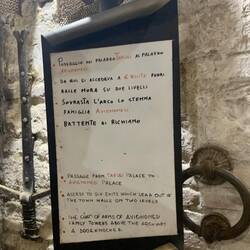 PASSAGGIO DAL PALAZZO TARUGI AL PALAZZO
AVIGNONESI
DA QUI SI ACCEDEVA A 6 USCITE FUORI
DALLE MURA SU DUE LIVELLI
SOVRASTA L'ARCO LO STEMMA
FAMIGLIA AVIGNONESI
BATTENTE DI RICHIAMO
PASSAGE FROM TARUGI PALACE TO
AVIGNONESI PALACE
ACCESS TO SIX EXITS WHICH LEAD OUT OF
THE TOWN WALLS ON TWO LEVELS
THE COAT OF ARMS OF AVIGNONESI
FAMILY TOWERS ABOVE THE ARCHWAY
A DOORKNOCKER